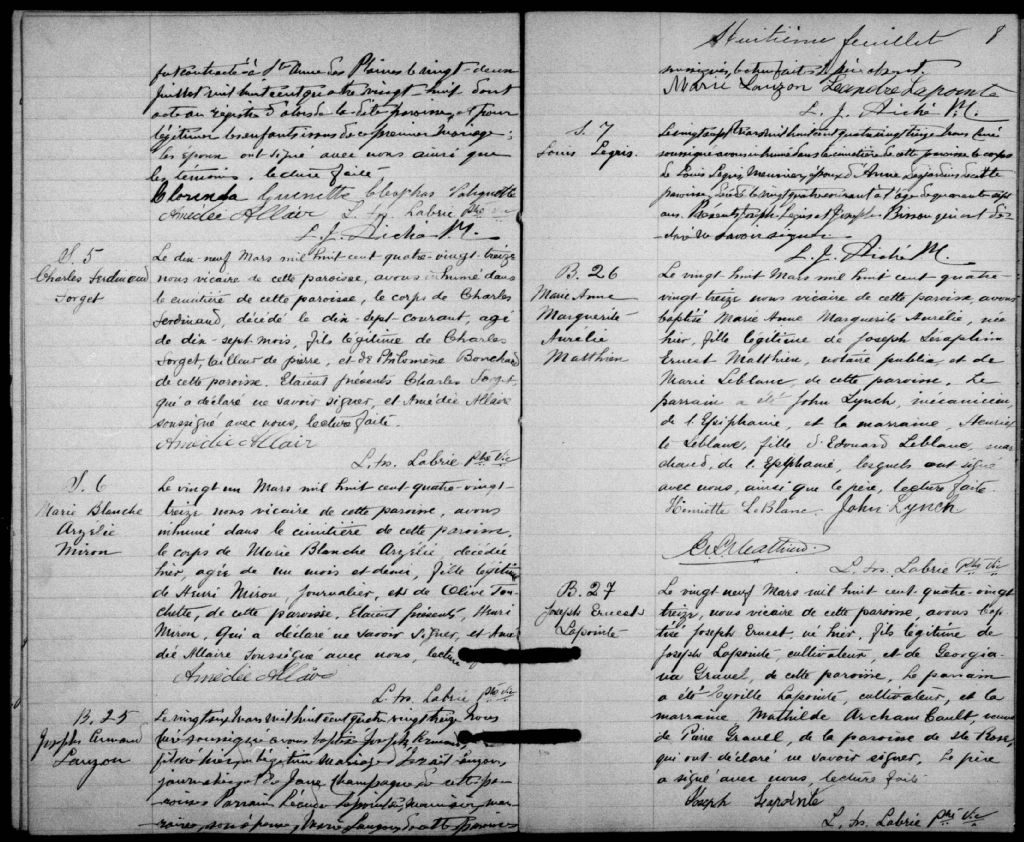 fut contracté à Ste Anne des Plaines le vingt-deux
juillet mil huit cent quatre vingt huit dont
acte au registre d'alors de la dite paroisse, et pour
légitimer les enfants issus de ce premier mariage:
les époux ont signé avec nous ainsi que
les temoins, lecture faite
Clorinda Guenette Cleophas
Amédée Allair L. Jos. Labrie Ptre Vic
L. J. Piché Ptr.
S. 5
Charles Ferdinand
Forget
Le dix neuf Mars mil huit cent quatre-vingt-treize
nous vicaire de cette paroisse, avons inhumé dans
le cimitière de cette paroisse, le corps de Charles
Ferdinand, décédé le dix-sept courant, agé
de dix-sept mois, fils légitime de Charles
Forget, tailleur de pierre, et de Philomène Bouchard
de cette paroisse. Etaient présents Charles Forget,
qui a déclaré ne savoir signer, et Amédée Allaire
soussigné avec nous, lecture faite.
Amédée Allair
L. Jos. Labrie Ptre Vic
S. 6
Marie Blanche
Arzélie
Miron
Le vingt un Mars mil huit cent quatre-vingt-
treize nous vicaire de cette paroisse, avons
inhumé dans le cimitière de cette paroisse,
le corps de Marie Blanche Arzélie, décédée
hier, agée de un mois et demi, fille légitime
de Henri Miron, journalier, et de Olive Tou-
chette, de cette paroisse. Etaient présents, Henri
Miron, qui a déclaré ne savoir signer, et Amé-
dée Allaire soussigné avec nous, lecture
Amédée Allair
L. Jos. Labrie Ptre Vic
B. 25
Joseph Armand
Lauzon
Le vingt Mars mil huit cent quatre vingt treize Nous
Curé soussigné avons baptisé Joseph Armand,
né hier, du légitime mariage d' Lauzon,
journalier, et de Champagne de cette pa-
roisse Parrain Léandre Lapointe, mar-
raine, son épouse, Marie Lauzon, de cette paroisse
Huitième feuillet 8
soussignés, lecture faite
Marie Lauzon Léandre Lapointe
L. J. Piché Ptr.
S. 7
Louis Legris.
Le vingt Mars mil huit cent quatre vingt treize Nous Curé
soussigné avons inhumé dans le cimetière de cette paroisse le corps
de Louis Legris, Menuisier, époux d'Anne Desjardins de cette
paroisse, décédé le vingt quatre courant à l'age de quarante sept
ans. Présents Joseph Legris et Joseph Bisson qui ont dé-
claré ne savoir signer.
L. J. Piché Ptr.
B. 26
Marie Anne
Marguerite
Aurélie
Matthieu
Le vingt huit Mars mil huit cent quatre-
vingt treize nous vicaire de cette paroisse, avons
baptisé Marie Anne Marguerite Aurélie, née
hier, fille légitime de Joseph Séraphin
Ernest Matthieu, notaire public, et de
Marie Leblanc, de cette paroisse. Le
parrain a été John Lynch, mécanicien,
de l'Epiphanie, et la marraine, Henriet-
te Leblanc, fille d'Edouard Leblanc, mar-
chand, de l'Epiphanie, lesquels ont signé
avec nous, ainsi que le père, lecture faite.
Henriette LeBlanc. John Lynch
L. Jos. Labrie Ptre Vic
B. 27
Joseph Ernest
Lapointe
Le vingt neuf Mars mil huit cent quatre-vingt
treize, nous vicaire de cette paroisse, avons bap-
tisé Joseph Ernest, né hier, fils légitime de
Joseph Lapointe, cultivateur, et de Georgia-
na Gravel, de cette paroisse. Le parrain
a été Cyrille Lapointe, cultivateur, et la
marraine Mathilde Archambault, veuve
de Pierre Gravel, de la paroisse de Ste Rose,
qui ont déclaré ne savoir signer. Le père
a signé avec nous, lecture faite.
Joseph Lapointe
L. Jos. Labrie Ptre Vic